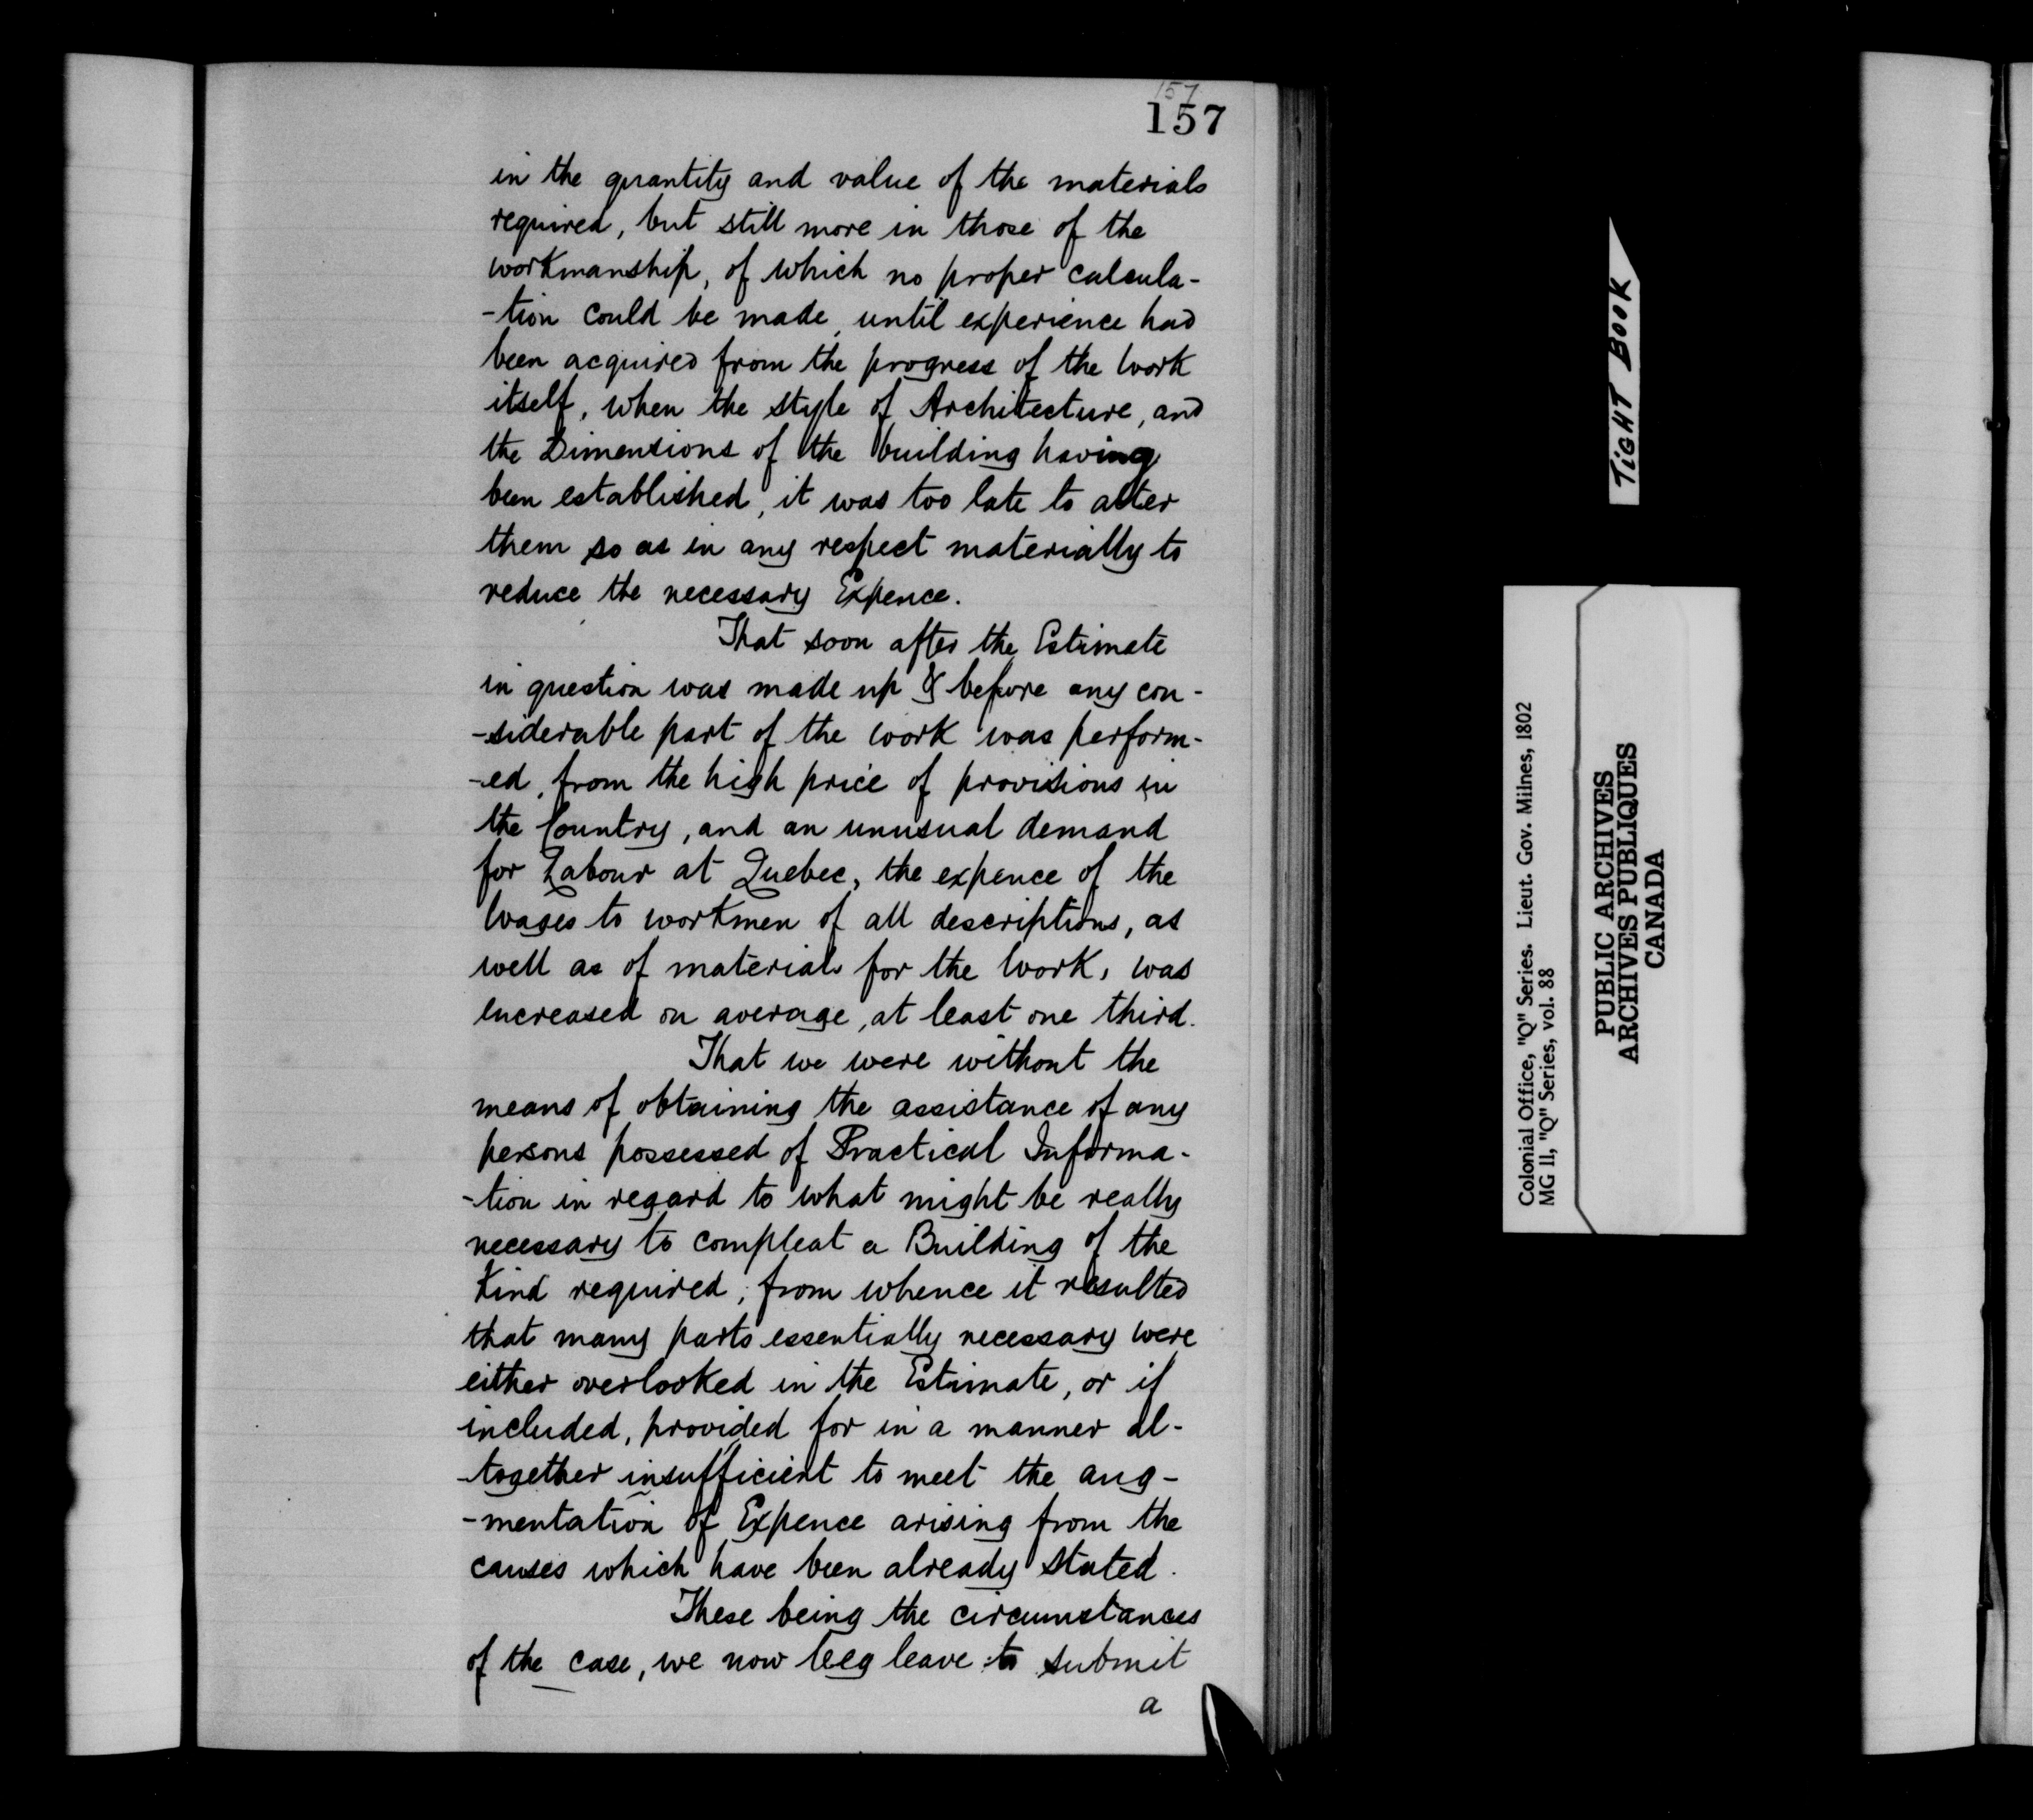 157
157
in the quantity and value of the materials
required, but still more in those of the
workmanship, of which no proper calcula-
-tion could be made, until experience had
been acquired from the progress of the work
itself, when the style of Architecture, and
the Dimensions of the building having
been established, it was too late to alter
them so as in any respect materially to
reduce the necessary Expence.
That soon after the Estimate
in question was made up & before any con-
-siderable part of the work was perform-
-ed, from the high price of provisions in
the Country, and an unusual demand
for Labour at Quebec, the expence of the
wages to workmen of all descriptions, as
well as of materials for the work, was
encreased on average, at least one third.
That we were without the
means of obtaining the assistance of any
persons possessed of Practical Informa-
-tion in regard to what might be really
necessary to compleat a Building of the
Kind required; from whence it resulted
that many parts essentially necessary were
either overlooked in the Estimate, or if
included, provided for in a manner al-
-together insufficient to meet the aug-
-mentation of Expence arising from the
causes which have been already stated.
These being the circumstances
of the case, we now beg leave to submit
a
TIGHT BOOK
Colonial Office, "Q" Series. Lieut. Gov. Milnes, 1802
MG 11, "Q" Series, vol. 88
PUBLIC ARCHIVES
ARCHIVES PUBLIQUES
CANADA